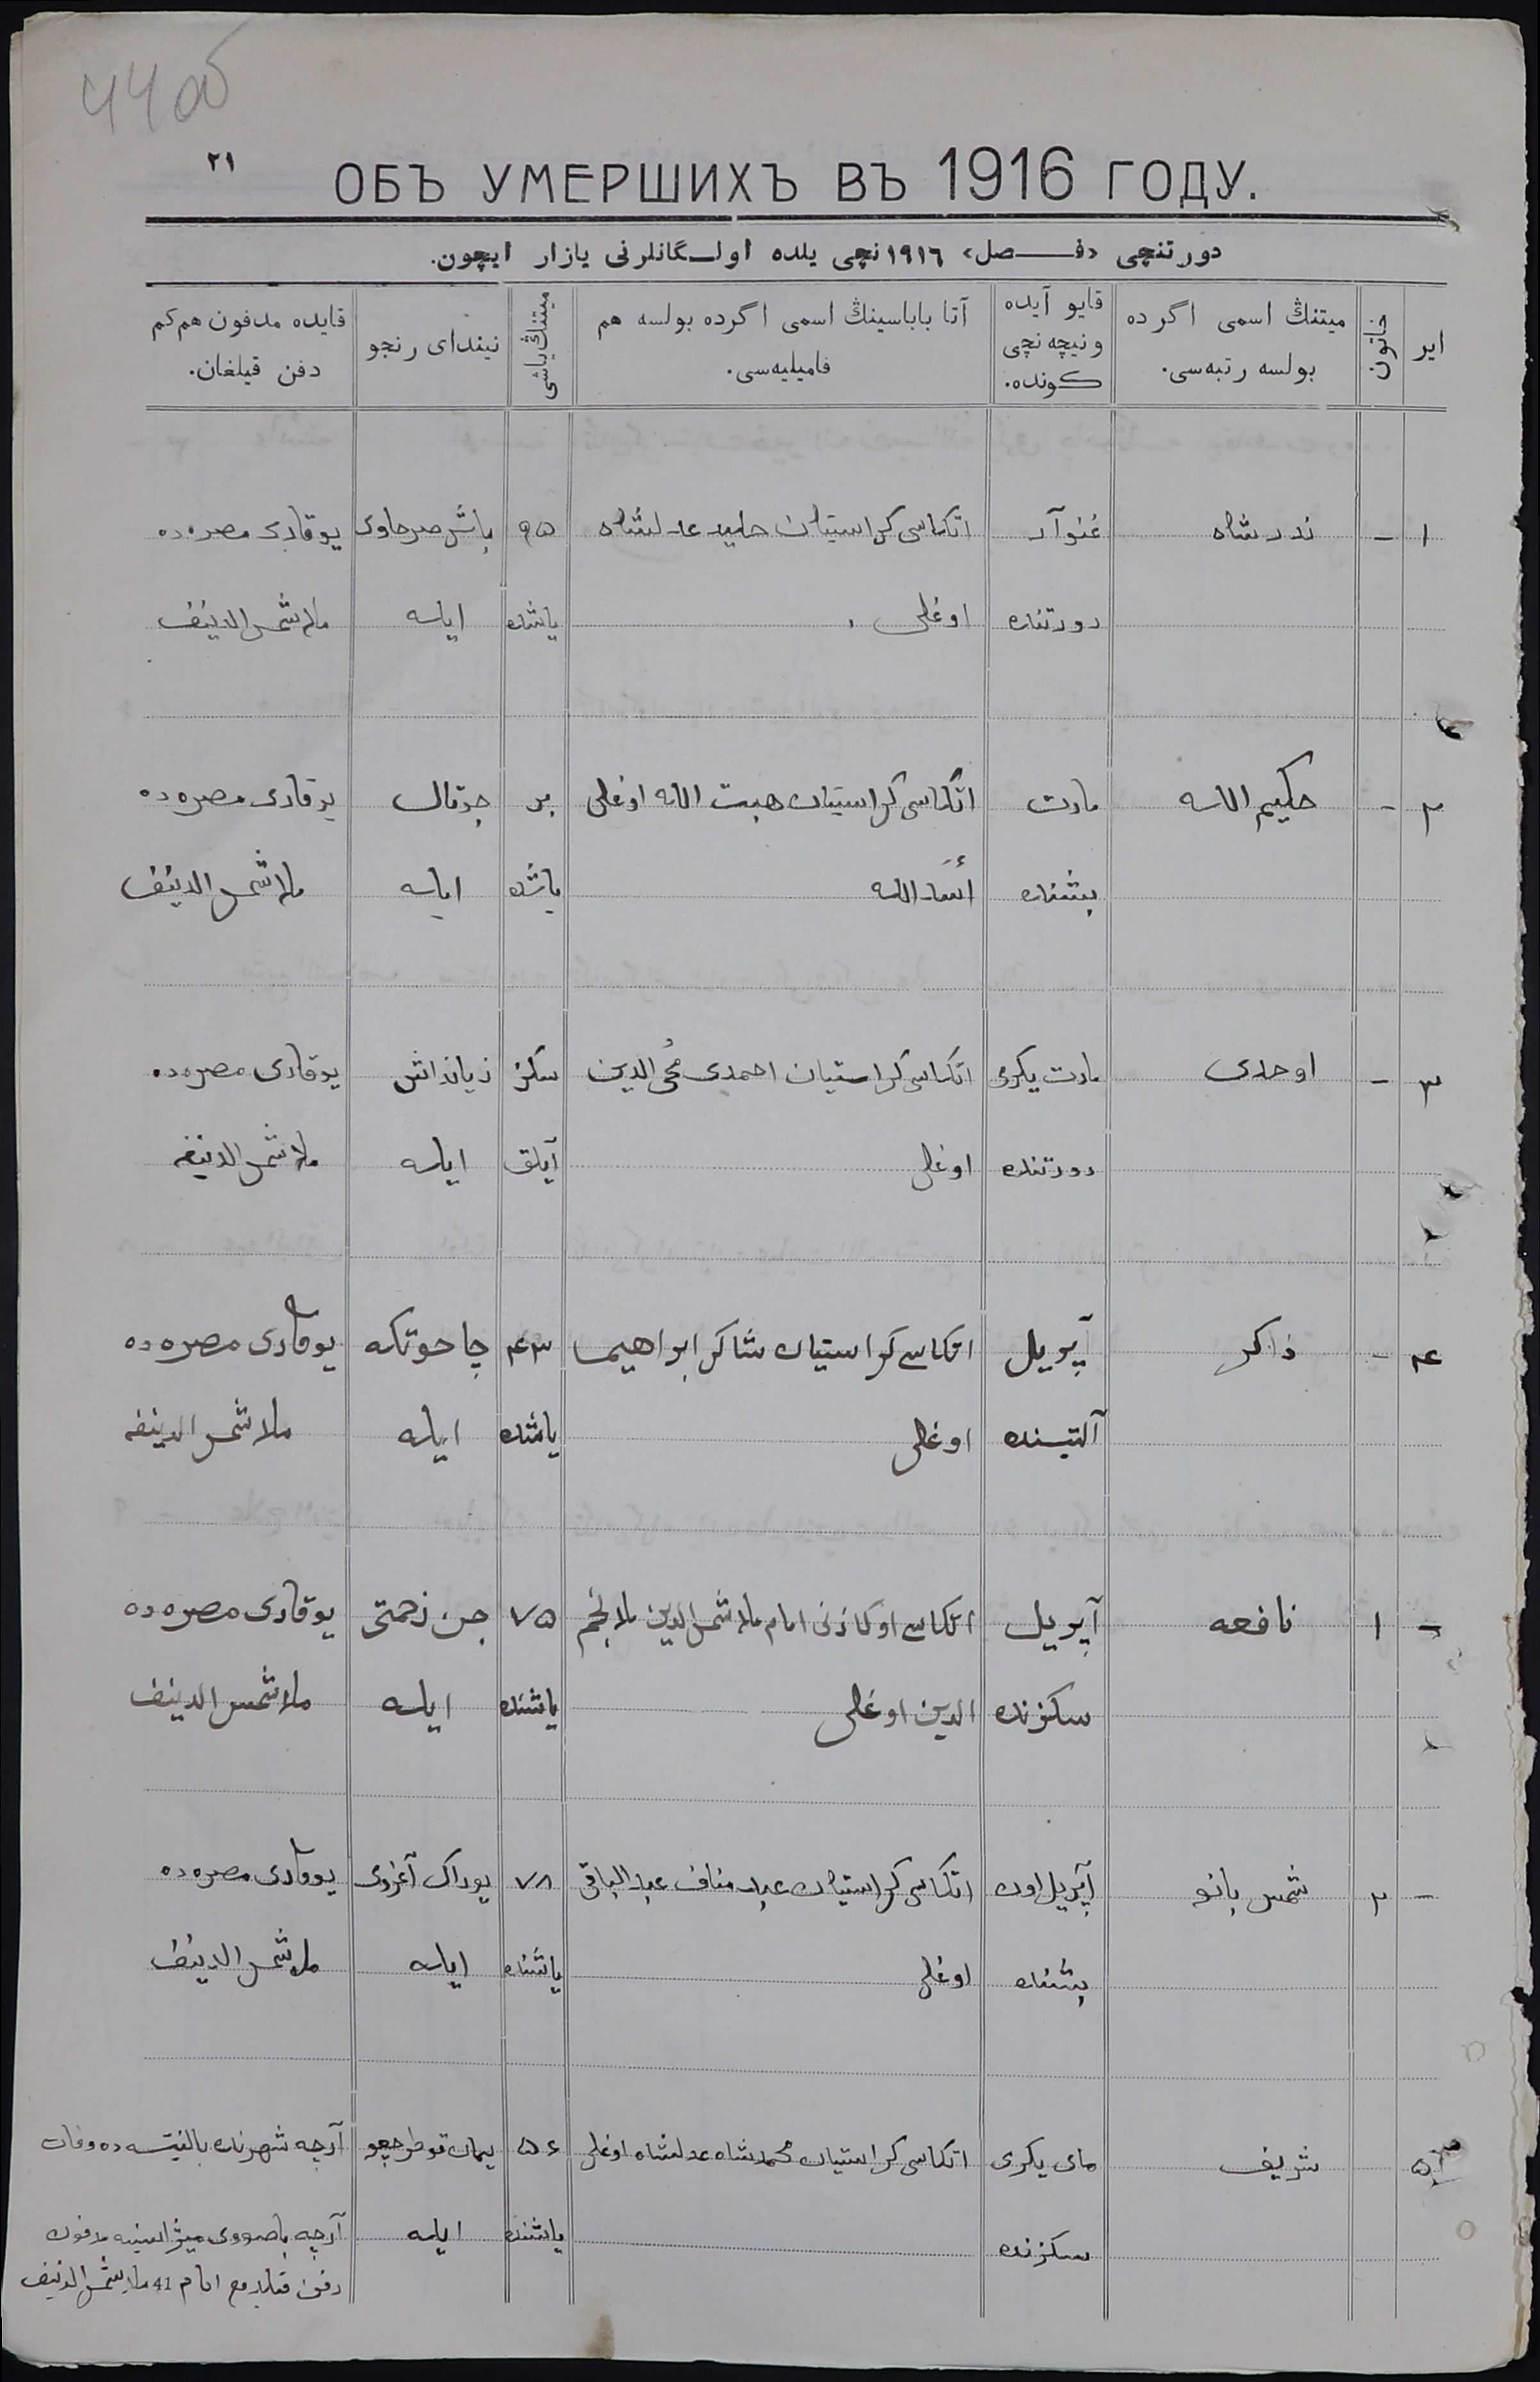 44 об
٢١
ОБЪ УМЕРШИХЪ ВЪ 1916 ГОДУ.
دورتنچی «فـصل» ١٩١٦نچی یلده اولـگانلرنی یازار ایچون.
ایر
خاتون
میتنڭ اسمی اگرده
بولسه رتبه‌سی.
قایو آیده
ونیچه‌نچی
کونده.
آتا باباسینڭ اسمی اگرده بولسه هم
فامیلیه‌سی.
میتنڭ یاشی
نیندای رنجو
قایده مدفون هم‌کم
دفن قیلغان.
١ - ندرشاه غنوآر اتکاسی کراستیان عدلشاه ٩٥ باش یوقاری مصره‌ده
دورتنده اوغلی یاشنده ایله ملا شمس الدینف
٢ - حکیم الله مارت اتکاسی کراستیان هبت الله اوغلی بر یوقاری مصره‌ده
بشنده یاشده ایله ملا شمس الدینف
٣ - اوحدی مارت یکرمی اتکاسی کراستیان احمدی محی الدین سکز یوقاری مصره‌ده
دورتنده اوغلی آیلق ایله ملا شمس الدینف
٤ - ذاکر آپریل اتکاسی کراستیان شاکر ابراهیم ٤٣ چاحوتکه یوقاری مصره‌ده
آلتیسنده اوغلی یاشنده ایله ملا شمس الدینف
- ١ نافعه آپریل اتکاسی اوکازنی امام ملا شمس الدین ملا نجم ٧٥ جن زحمتی یوقاری مصره‌ده
سکزنده الدین اوغلی یاشنده ایله ملا شمس الدینف
- ٢ شمس بانو آپریل اون اتکاسی کراستیان عبد مناف عبد الباقی ٧٨ یوراک آغروی یوقاری مصره‌ده
بشنده اوغلی یاشنده ایله ملا شمس الدینف
٥ شریف مای یکرمی اتکاسی کراستیان محمدشاه عدلشاه اوغلی ٥٤ یمان آرچه شهرنده بالنیتسه‌ده وفات
سکزنده یاشنده ایله آرچه مدفون
دفن امام 41 ملا شمس الدینف